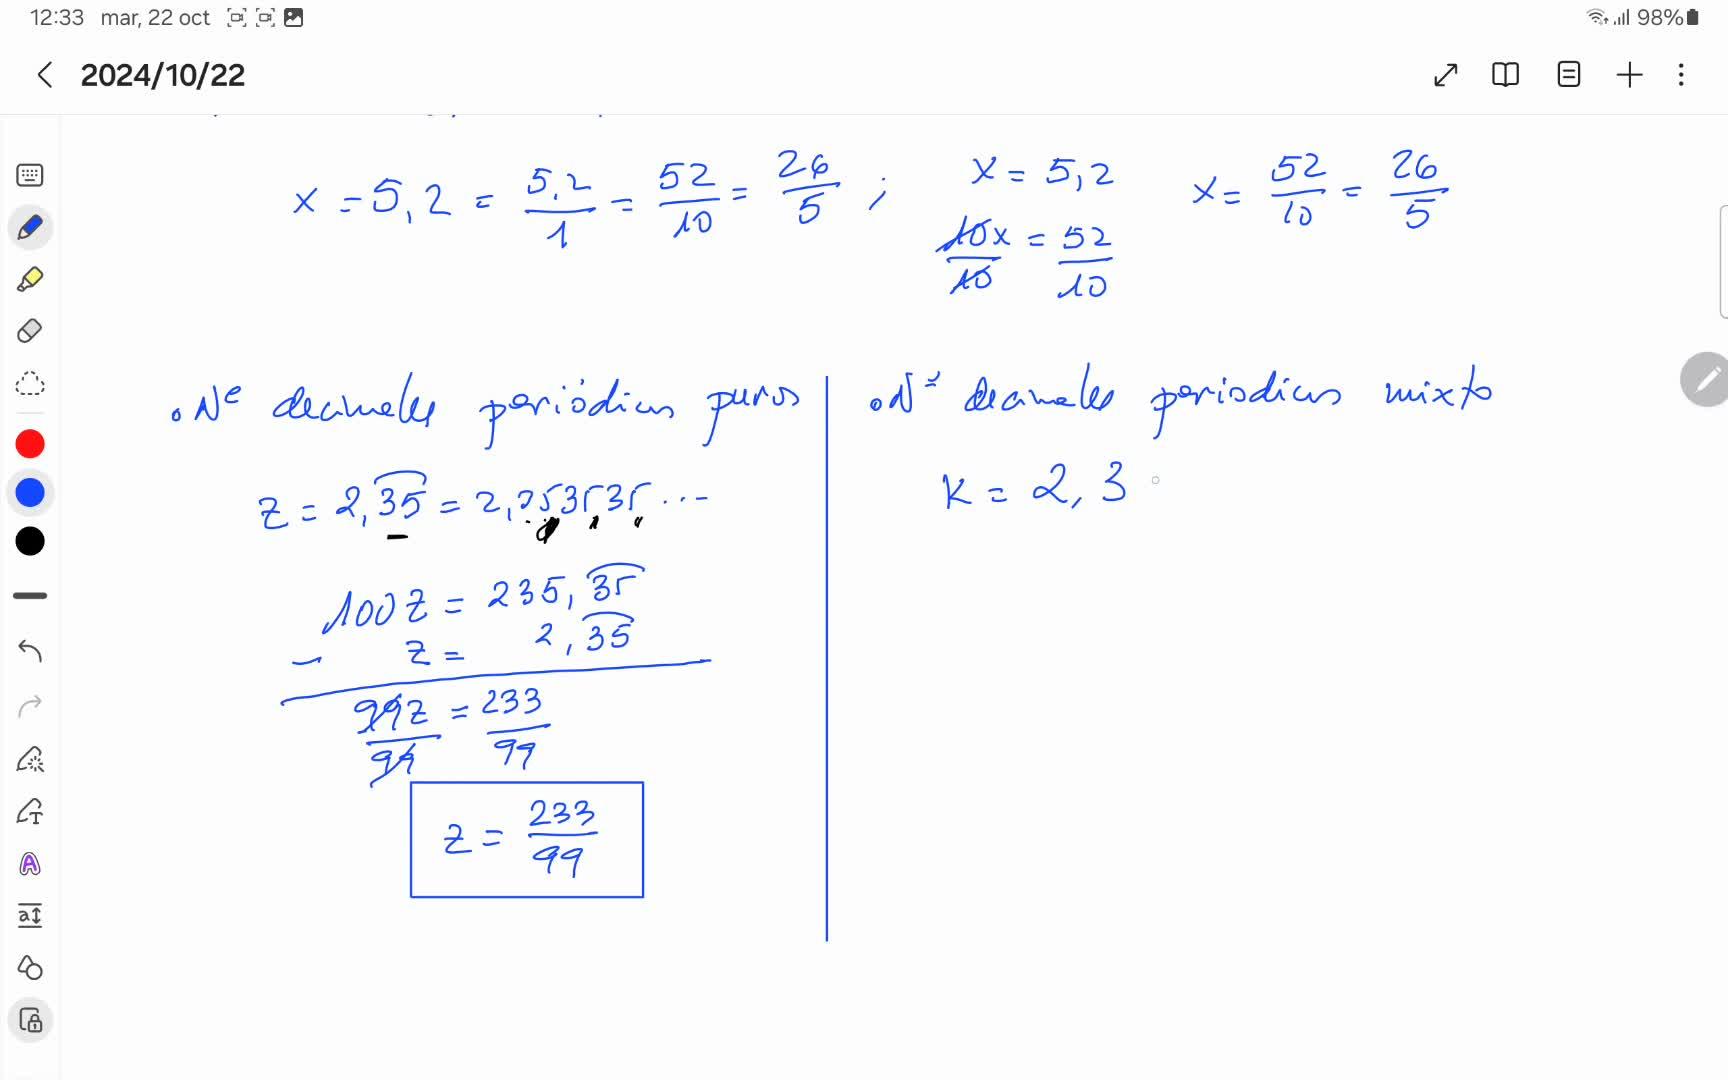 12:33 mar, 22 oct 98%
2024/10/22
x = 5,2 = 5,2/1 = 52/10 = 26/5 ;
x = 5,2
10x/10 = 52/10
x = 52/10 = 26/5
• Nº decimales periódicos puros
z = 2,35 = 2,353535...
100z = 235,35
− z = 2,35
99z/99 = 233/99
z = 233/99
• Nº decimales periodicos mixto
K = 2,3